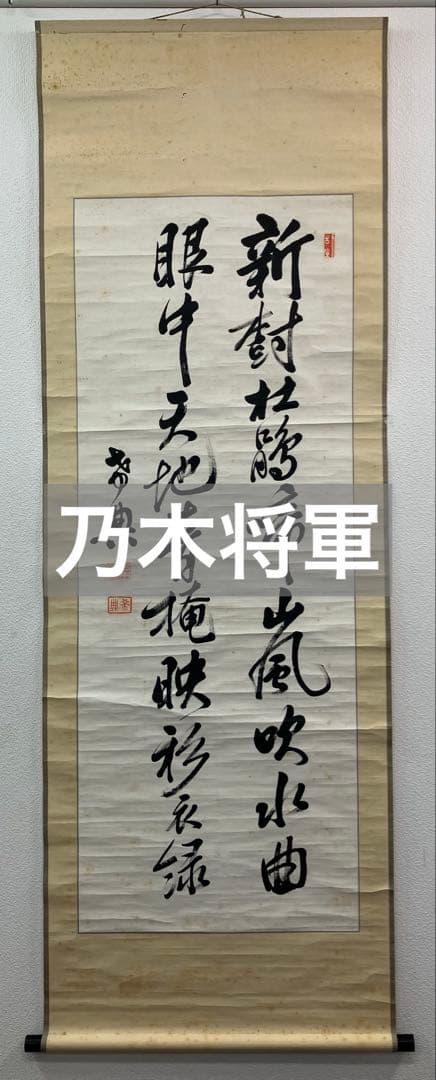 新樹杜鵑啼山風吹水曲
眼中天地青掩映衫衣緑
希典
乃木将軍